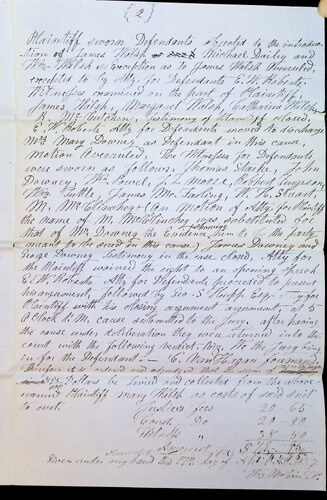 (2)
Plaintiff sworn, Defendants objected to the introduc-
tion of James Welsh Michael Dailey and
Wm Walsh exception as to James Welsh Overruled,
excepted to by Atty for Defendants E. W. Roberts.
Witnesses examined on the part of Plaintiff
James Welsh, Margaret Welsh, Catharine Welsh
R. McCutchen, Testimony of Plaintiff closed,
E. W. Roberts Atty for Defendants moved to discharge
Mrs Mary Downey as Defendant in this cause,
motion overruled. The Witnesses for Defendants
were sworn as follows, Thomas Starke, John
Downey, Wm Powel, L. Morse, Ferguson,
Wm Tuttle, James McFarling, W. C. Stuck,
M. McClenchey (On Motion of Atty for Plaintiff
the name of McClenchey was substituted for
that of Mr. Downey the Evidence showing him to be the party
meant to be sued in this cause) James Downey and
George Downey Testimony in the case closed, Atty for
the Plaintiff waived the right to an opening speech
E. W. Roberts Atty for Defendants proceeded to present
his argument, followed by Geo. S. Hupp Esq. Atty for
Plaintiff with his closing argument, at 5
O'Clock P.M. cause submitted to the Jury. After having
the cause under deliberation they were returned into the
court with the following verdict, viz. We the Jury
in for the Defendant:— foreman
Therefore it is ordered and adjudged that the sum of
Dollars be levied and collected from the above-
named Plaintiff Mary Welsh as costs of said suit
to wit:
Justices fees 20 65
Const. Do 20 80
Witness " 28 50
Given under my hand this day of